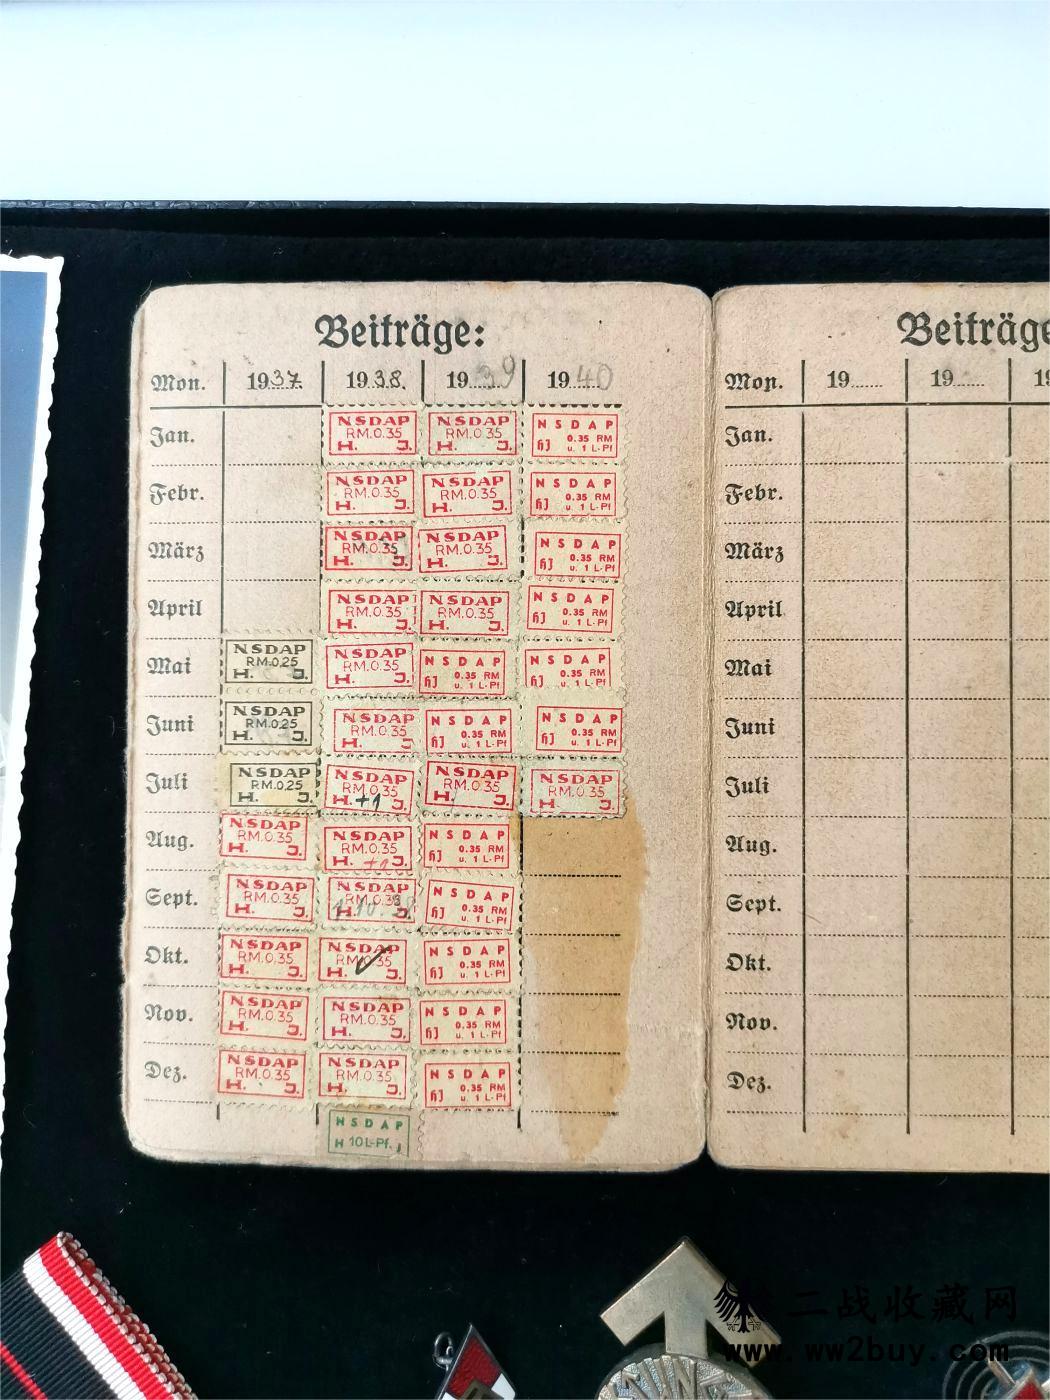 Beiträge: Beiträge
Mon. 1937. 1938. 1939 1940 Mon. 19...... 19...... 1
Jan. NSDAP RM.0.35 H. J. NSDAP RM.0.35 H. J. NSDAP HJ 0.35 RM u. 1 L-Pf Jan.
Febr. NSDAP RM.0.35 H. J. NSDAP RM.0.35 H. J. NSDAP HJ 0.35 RM u. 1 L-Pf Febr.
März NSDAP RM.0.35 H. J. NSDAP RM.0.35 H. J. NSDAP HJ 0.35 RM u. 1 L-Pf März
April NSDAP RM.0.35 H. J. NSDAP RM.0.35 H. J. NSDAP HJ 0.35 RM u. 1 L-Pf April
Mai NSDAP RM.0.25 H. J. NSDAP RM.0.35 H. J. NSDAP HJ 0.35 RM u. 1 L-Pf NSDAP HJ 0.35 RM u. 1 L-Pf Mai
Juni NSDAP RM.0.25 H. J. NSDAP RM.0.35 H. J. NSDAP HJ 0.35 RM u. 1 L-Pf NSDAP HJ 0.35 RM u. 1 L-Pf Juni
Juli NSDAP RM.0.25 H. J. NSDAP RM.0.35 H. +1 J. NSDAP RM.0.35 H. J. NSDAP RM.0.35 H. J. Juli
Aug. NSDAP RM.0.35 H. J. NSDAP RM.0.35 H. +1 J. NSDAP HJ 0.35 RM u. 1 L-Pf Aug.
Sept. NSDAP RM.0.35 H. J. NSDAP RM.0.35 H. J. NSDAP HJ 0.35 RM u. 1 L-Pf Sept.
Okt. NSDAP RM.0.35 H. J. NSDAP RM.0.35 H. J. NSDAP HJ 0.35 RM u. 1 L-Pf Okt.
Nov. NSDAP RM.0.35 H. J. NSDAP RM.0.35 H. J. NSDAP HJ 0.35 RM u. 1 L-Pf Nov.
Dez. NSDAP RM.0.35 H. J. NSDAP RM.0.35 H. J. NSDAP HJ 0.35 RM u. 1 L-Pf Dez.
NSDAP H 10 L-Pf. J
二战收藏网
www.ww2buy.com